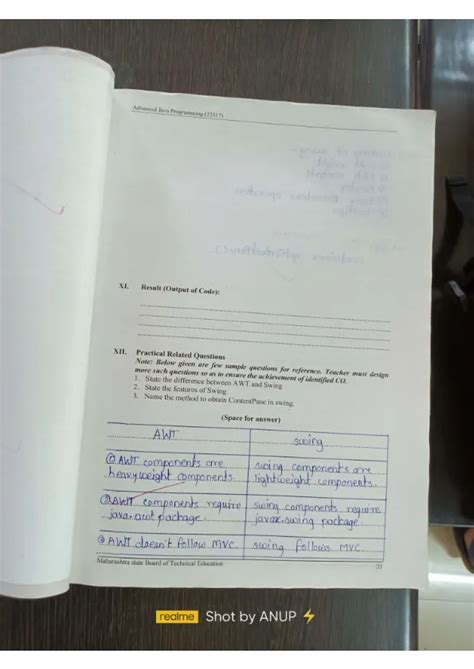 Advanced Java Programming (22517)
XI. Result (Output of Code):
XII. Practical Related Questions
Note: Below given are few sample questions for reference. Teacher must design
more such questions so as to ensure the achievement of identified CO.
1. State the difference between AWT and Swing
2. State the features of Swing
3. Name the method to obtain ContentPane in swing.
(Space for answer)
AWT swing
① AWT components are swing components are
heavyweight components. lightweight components.
② AWT components require swing components require
java.awt package. javax.swing package.
③ AWT doesn't follow MVC. swing follows MVC.
Maharashtra state Board of Technical Education 
realme Shot by ANUP⚡